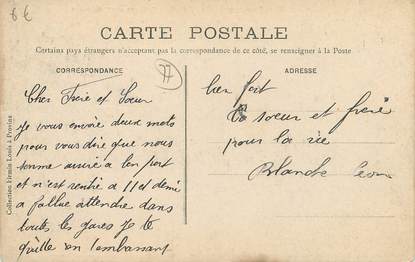 6€
CARTE POSTALE
Certains pays étrangers n'acceptent pas la correspondance de ce côté, se renseigner à la Poste
CORRESPONDANCE
77
ADRESSE
Collection Hemin Louis à Provins
Cher Frère et Soeur
Je vous envoie deux mots
pour vous dire que nous
somme arrivé a bon port
et n'est rentré a 11 et demi
a fallue attendre dans
toute les gares Je te
quitte en t'embrassant
bien fort
Ta soeur et frère
pour la vie
Blanche Leon